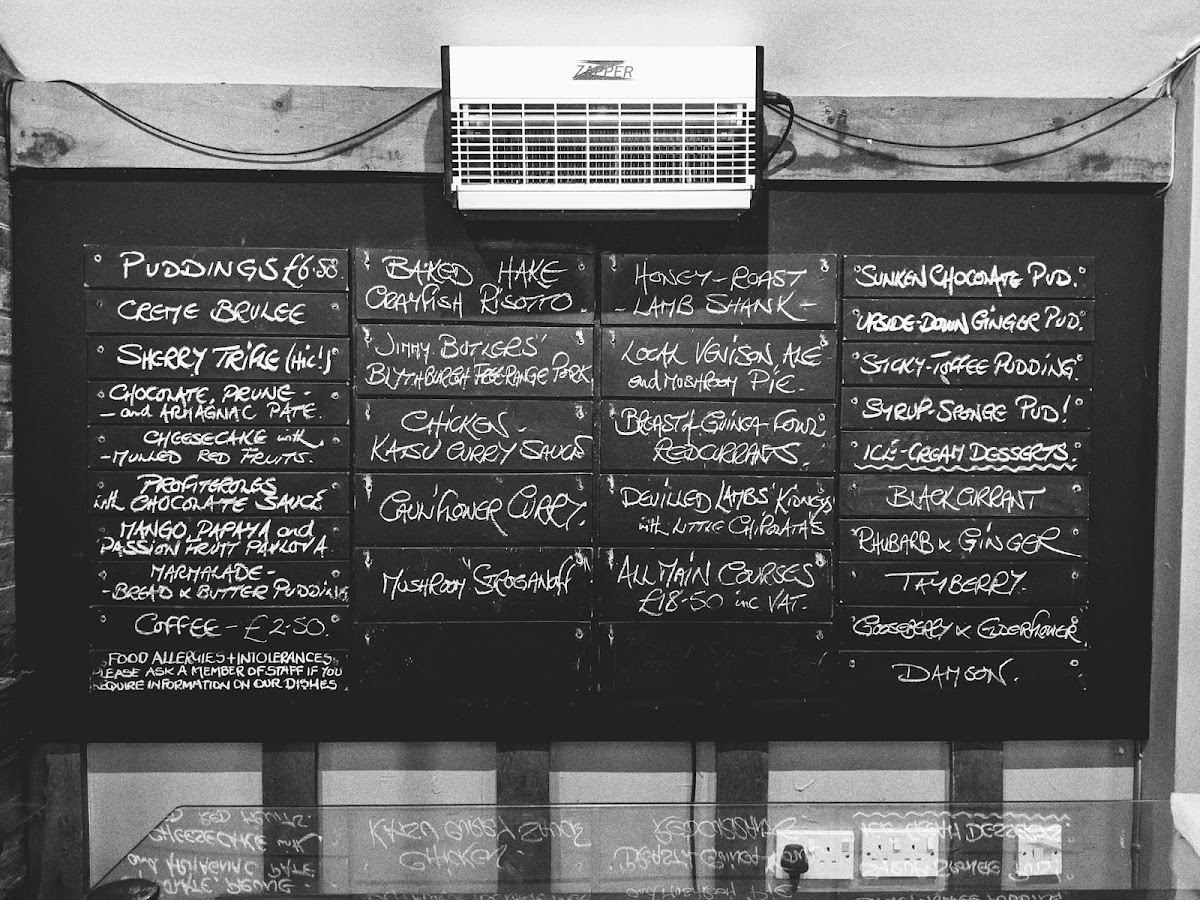 ZAPPER
PUDDINGS £6.50.
CREME BRULEE
SHERRY TRIFLE (Hic!)
CHOCOLATE, PRUNE -
- and ARMAGNAC PATE.
CHEESECAKE with
- MULLED RED FRUITS.
PROFITEROLES
with CHOCOLATE SAUCE
MANGO, PAPAYA and
PASSION FRUIT PAVLOVA
MARMALADE -
- BREAD & BUTTER PUDDING
COFFEE - £2.50.
FOOD ALLERGIES + INTOLERANCES
PLEASE ASK A MEMBER OF STAFF IF YOU
REQUIRE INFORMATION ON OUR DISHES
BAKED HAKE
CRAYFISH RISOTTO.
JIMMY BUTLERS'
BLYTHBURGH FREERANGE PORK
CHICKEN -
KATSU CURRY SAUCE
CAULIFLOWER CURRY.
MUSHROOM "STROGANOFF"
HONEY-ROAST
- LAMB SHANK -
LOCAL VENISON ALE
and MUSHROOM PIE.
BREAST of GUINEA-FOWL
REDCURRANTS.
DEVILLED LAMBS' KIDNEYS
with LITTLE CHIPOLATA'S
ALL MAIN COURSES
£18.50 inc VAT.
SUNKEN CHOCOLATE PUD.
UPSIDE-DOWN GINGER PUD.
STICKY-TOFFEE PUDDING.
SYRUP-SPONGE PUD!
ICE-CREAM DESSERTS.
BLACKCURRANT
RHUBARB & GINGER
TAYBERRY.
GOOSEBERRY & ELDERFLOWER
DAMSON.